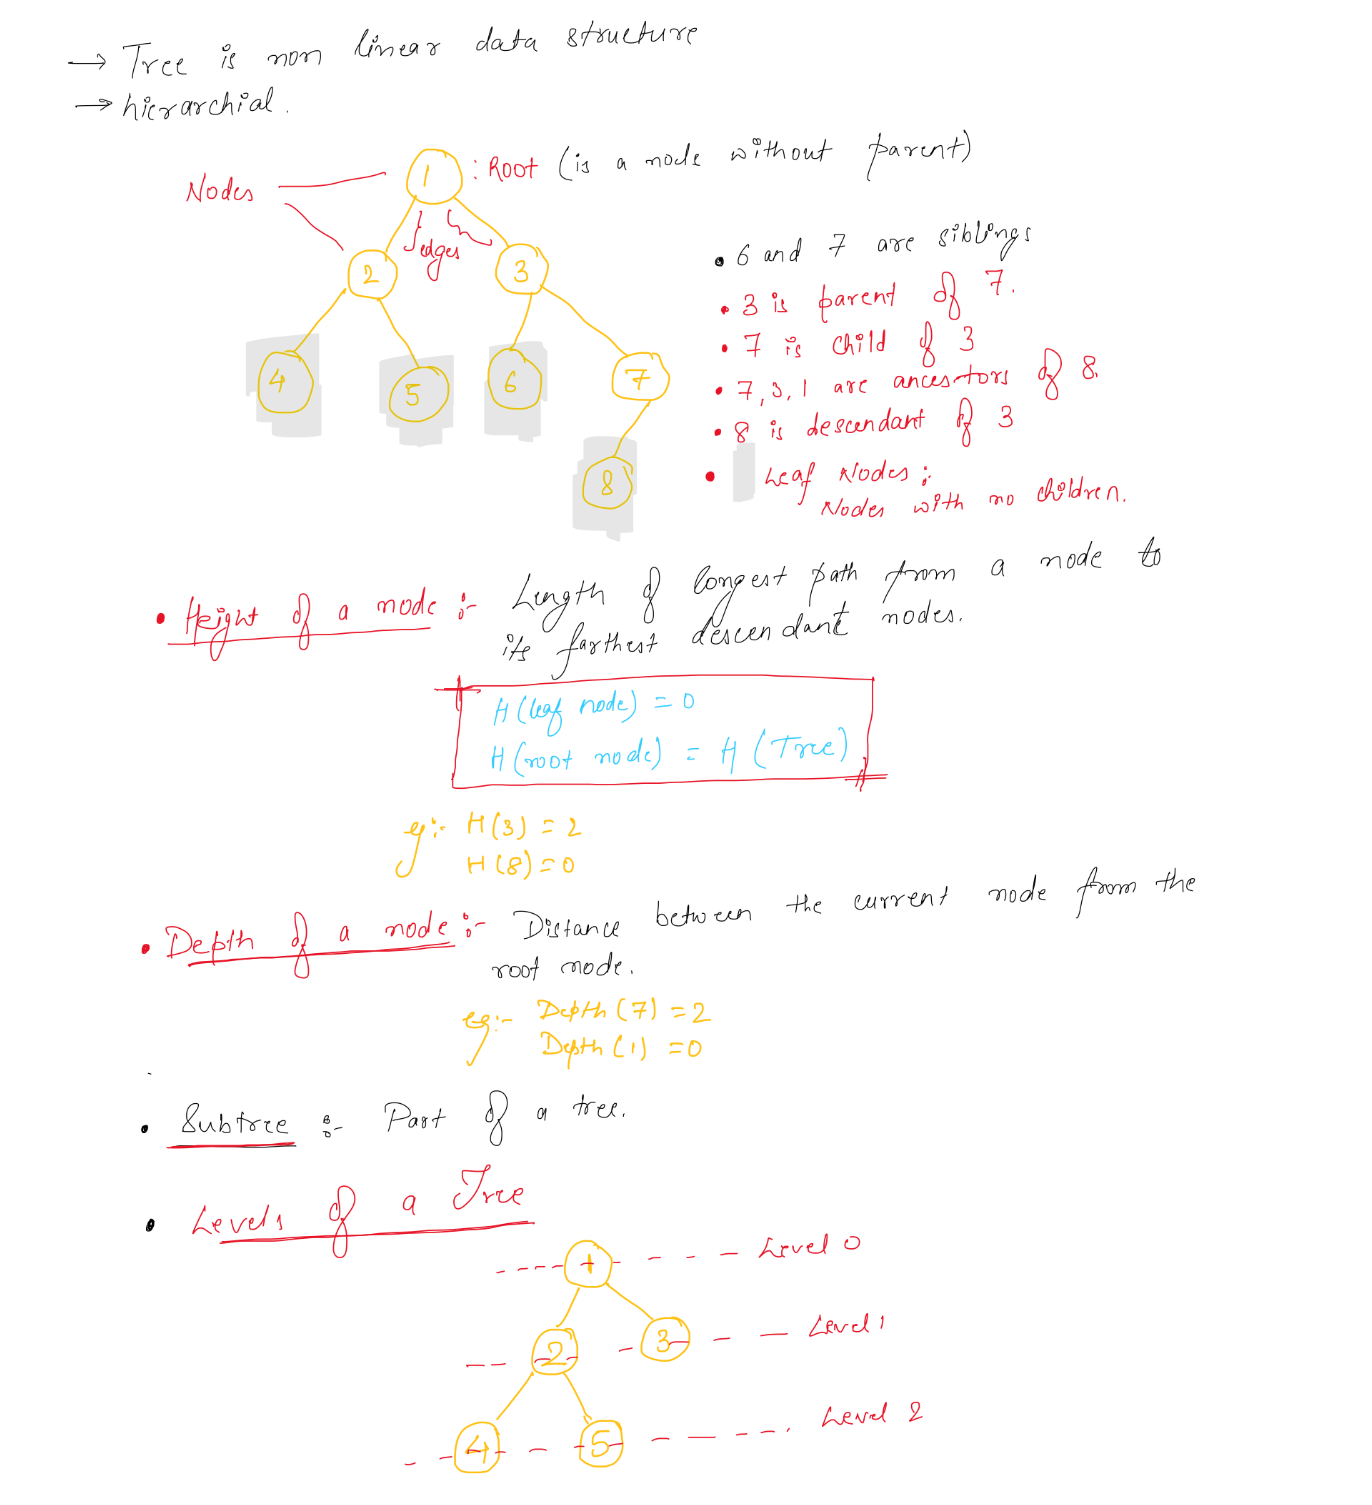 → Tree is non linear data structure
→ hierarchial.
1 : Root (is a node without parent)
Nodes
edges
2 3
4 5 6 7
8
• 6 and 7 are siblings
• 3 is parent of 7.
• 7 is child of 3
• 7, 3, 1 are ancestors of 8.
• 8 is descendant of 3
• Leaf Nodes :
Nodes with no children.
• Height of a node :- Length of longest path from a node to
its farthest descendant nodes.
H (leaf node) = 0
H (root node) = H (Tree)
eg:- H(3) = 2
H(8) = 0
• Depth of a node :- Distance between the current node from the
root node.
eg:- Depth (7) = 2
Depth (1) = 0
• Subtree :- Part of a tree.
• Levels of a Tree
1 Level 0
2 3 Level 1
4 5 Level 2